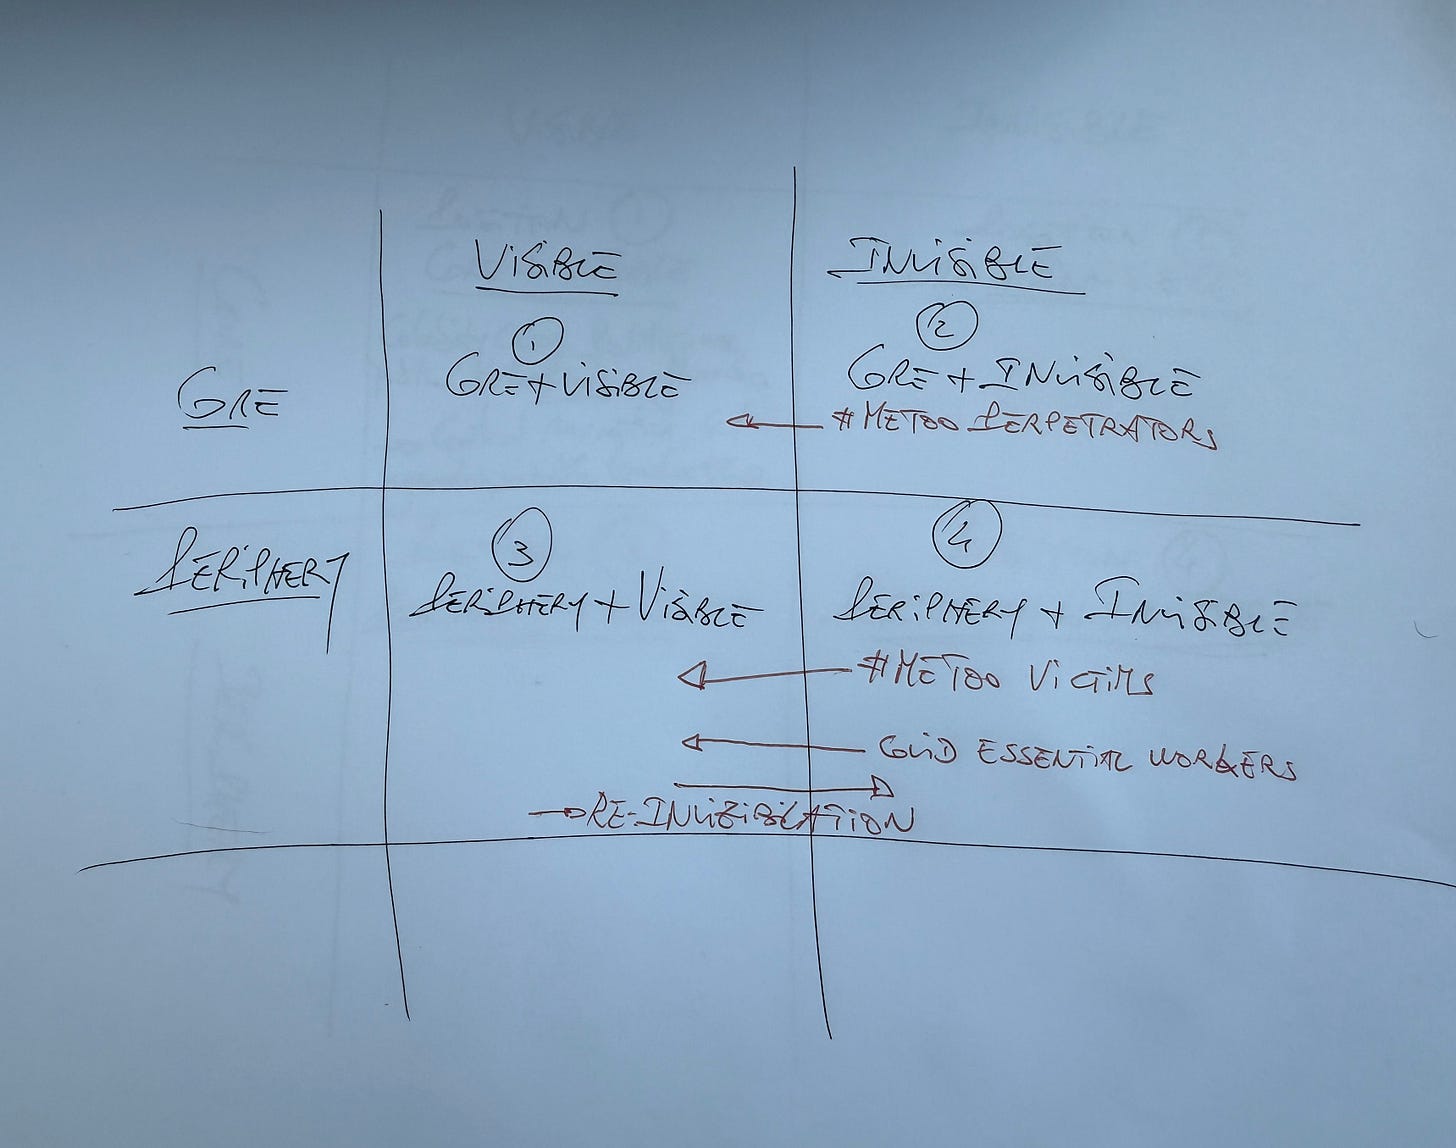 VISIBLE
INVISIBLE
CORE
1
CORE + VISIBLE
2
CORE + INVISIBLE
#METOO PERPETRATORS
PERIPHERY
3
PERIPHERY + VISIBLE
4
PERIPHERY + INVISIBLE
#METOO VICTIMS
COVID ESSENTIAL WORKERS
→ RE-INVIZIBILATION